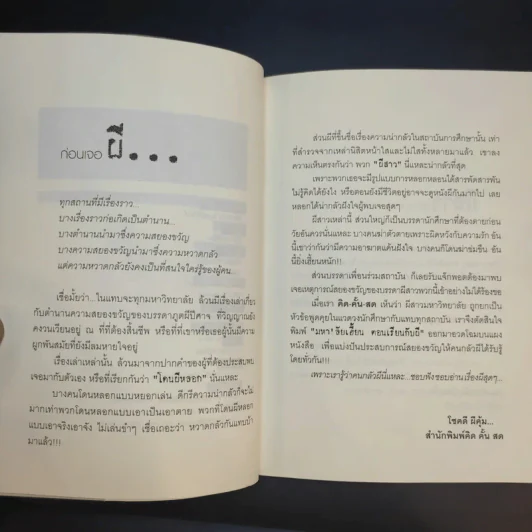 ก่อนเจอ ผี...
ทุกสถานที่มีเรื่องราว...
บางเรื่องราวก่อเกิดเป็นตำนาน...
บางตำนานนำมาซึ่งความสยองขวัญ
บางความสยองขวัญนำมาซึ่งความหวาดกลัว
แต่ความหวาดกลัวยังคงเป็นที่สนใจใคร่รู้ของผู้คน...
เชื่อมั้ยว่า...ในแทบจะทุกมหาวิทยาลัย ล้วนมีเรื่องเล่าเกี่ยว
กับตำนานความสยองขวัญของบรรดาภูตผีปีศาจ ที่วิญญาณยัง
คงวนเวียนอยู่ ณ ที่ที่ต้องสิ้นชีพ หรือที่ที่เขาหรือเธอผู้นั้นมีความ
ผูกพันสมัยที่ยังมีลมหายใจอยู่
เรื่องเล่าเหล่านั้น ล้วนมาจากปากคำของผู้ที่ต้องประสบพบ
เจอมากับตัวเอง หรือที่เรียกกันว่า "โดนผีหลอก" นั่นแหละ
บางคนโดนหลอกแบบหยอกเล่น ดีกรีความน่ากลัวก็จะไม่
มากเท่าพวกโดนหลอกแบบเอาเป็นเอาตาย พวกที่โดนผีหลอก
แบบเอาจริงเอาจัง ไม่เล่นขำๆ เชื่อเถอะว่า หวาดกลัวกันแทบบ้า
มาแล้ว!!!
ส่วนผีที่ขึ้นชื่อเรื่องความน่ากลัวในสถาบันการศึกษานั้น เท่า
ที่สำรวจจากเหล่านิสิตหน้าใสและไม่ใสทั้งหลายมาแล้ว เขาลง
ความเห็นตรงกันว่า พวก "ผีสาว" นี่แหละน่ากลัวที่สุด
เพราะพวกเธอจะมีรูปแบบการหลอกหลอนได้สารพัดสารพัน
ไม่รู้คิดได้ยังไง หรือตอนยังมีชีวิตอยู่อาจจะดูหนังผีกันมากไป เลย
หลอกได้น่ากลัวฝังใจผู้พบเจอสุดๆ
ผีสาวเหล่านี้ ส่วนใหญ่ก็เป็นบรรดานักศึกษาที่ต้องตายก่อน
วัยอันควรนั่นแหละ บางคนฆ่าตัวตายเพราะผิดหวังกับความรัก อัน
นี้เขาว่ากันว่ามีความอาฆาตแค้นฝังใจ บางคนก็โดนฆ่าข่มขืน อัน
นี้ยิ่งเฮี้ยนหนัก!!
ส่วนบรรดาเพื่อนร่วมสถาบัน ก็เลยรับแจ็กพอตต้องมาพบ
เจอเหตุการณ์สยองขวัญของบรรดาผีสาวพวกนี้เข้าอย่างไม่ได้ร้องขอ
เมื่อเรา คิด-คั้น-สด เห็นว่า ผีสาวมหาวิทยาลัย ถูกยกเป็น
หัวข้อพูดคุยในแวดวงนักศึกษากันแทบทุกสถาบัน เราจึงตัดสินใจ
พิมพ์ "มหา'ลัยเฮี้ยน ตอนเรียนกับผี" ออกมาอวดโฉมบนแผง
หนังสือ เพื่อแบ่งปันประสบการณ์สยองขวัญให้คนกลัวผีได้รับรู้
โดยทั่วกัน!!!
เพราะเรารู้ว่าคนกลัวผีนี่แหละ...ชอบฟังชอบอ่านเรื่องผีสุดๆ...
โชคดี ผีคุ้ม...
สำนักพิมพ์คิด คั้น สด